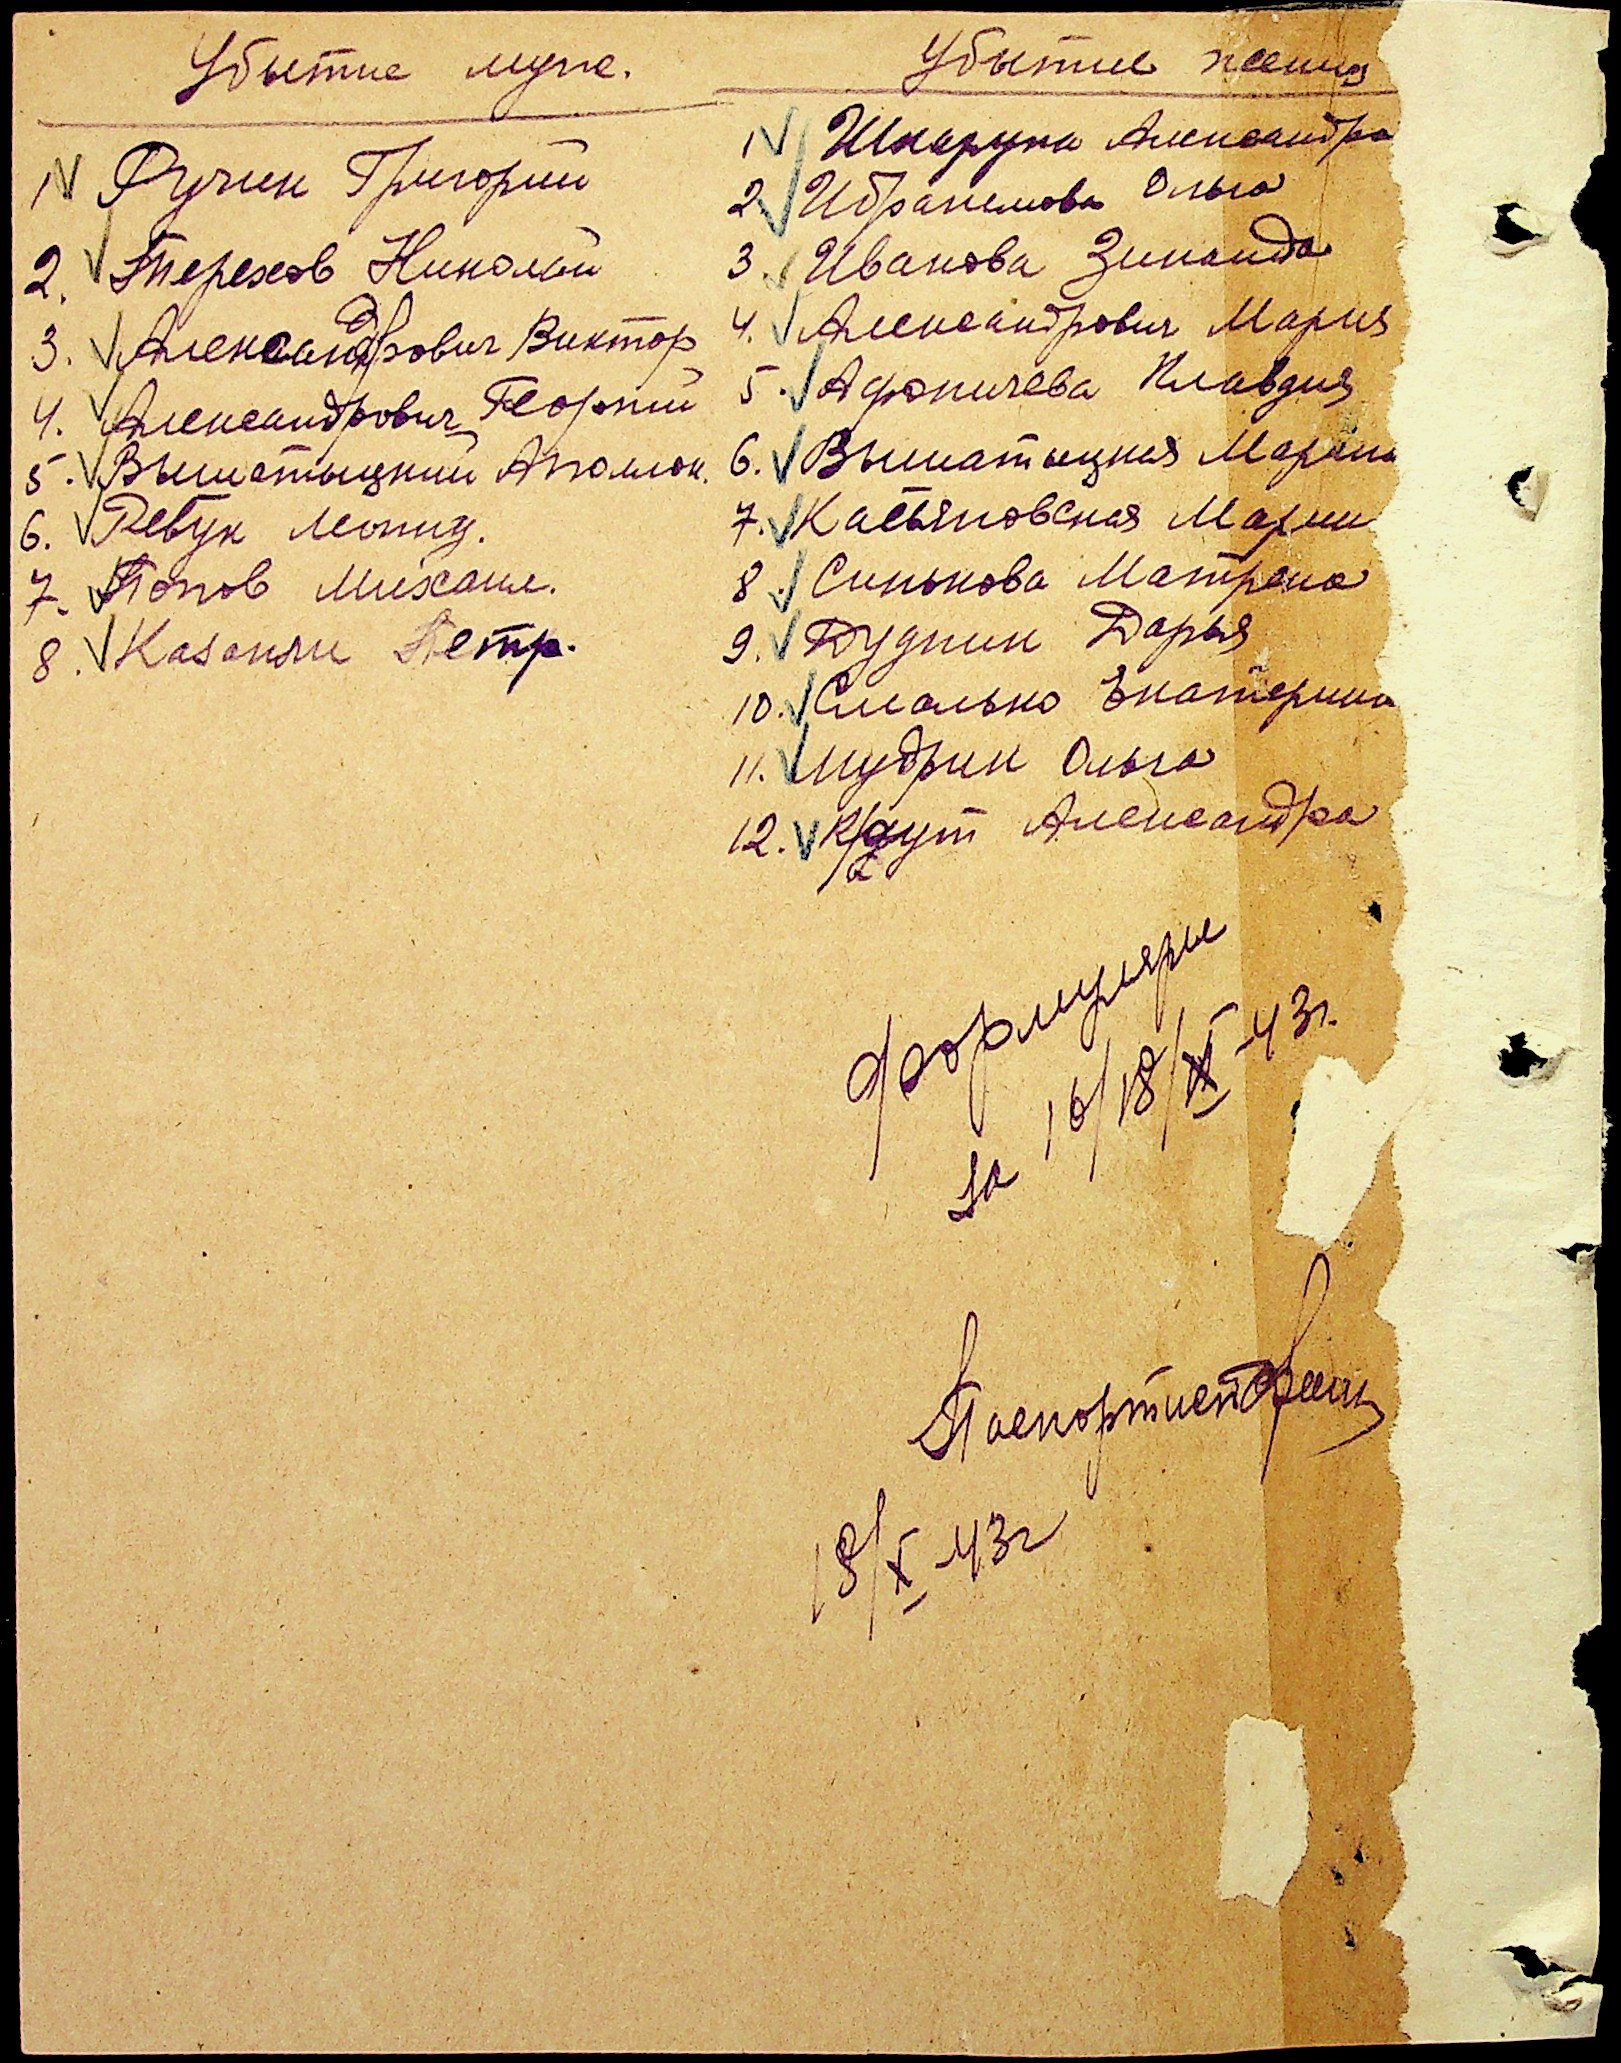 Убытие муж.
1 Фучик Григорий
2. Терехов Николай
3. Александрович Виктор
4. Александрович Георгий
5. Вышатыцкий Аполлон.
6. Ревук Леонид.
7. Попов Михаил.
8. Казанли Петр.
Убытие женщ
1 Шкарупа Александра
2 Ибрагимова Ольга
3. Иванова Зинаида
4. Александрович Мария
5. Афоничева Клавдия
6. Вышатыцкая Марина
7. Касьяновская Мария
8. Синькова Матрена
9. Дудник Дарья
10. Смалько Екатерина
11. Мудрик Ольга
12. Александра
формуляры
за 16/18/XI-43г.
Паспортист
18/X-43г